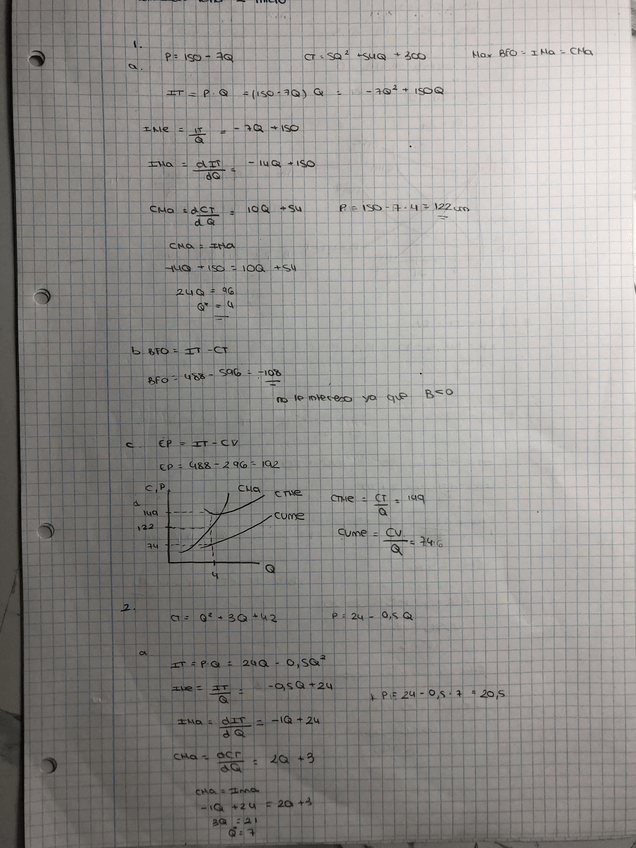 1.
P = 150 - 7Q CT = 5Q² + 54Q + 300 Max BFO = IMa = CMa
a.
IT = P·Q = (150 - 7Q) Q = -7Q² + 150Q
IMe = IT/Q = -7Q + 150
IMa = dIT/dQ = -14Q + 150
CMa = dCT/dQ = 10Q + 54 P = 150 - 7·4 = 122 um
CMa = IMa
-14Q + 150 = 10Q + 54
24Q = 96
Q* = 4
b. BFO = IT - CT
BFO = 488 - 596 = -108
no le interesa ya que B<0
c. EP = IT - CV
EP = 488 - 296 = 192
C,P CMa CTMe
149 CTMe = CT/Q = 149
122 CVMe
74 CVMe = CV/Q = 74
4 Q
2.
CT = Q² + 3Q + 42 P = 24 - 0,5Q
a
IT = P·Q = 24Q - 0,5Q²
IMe = IT/Q = -0,5Q + 24 P = 24 - 0,5·7 = 20,5
IMa = dIT/dQ = -1Q + 24
CMa = dCT/dQ = 2Q + 3
CMa = IMa
-1Q + 24 = 2Q + 3
3Q = 21
Q = 7